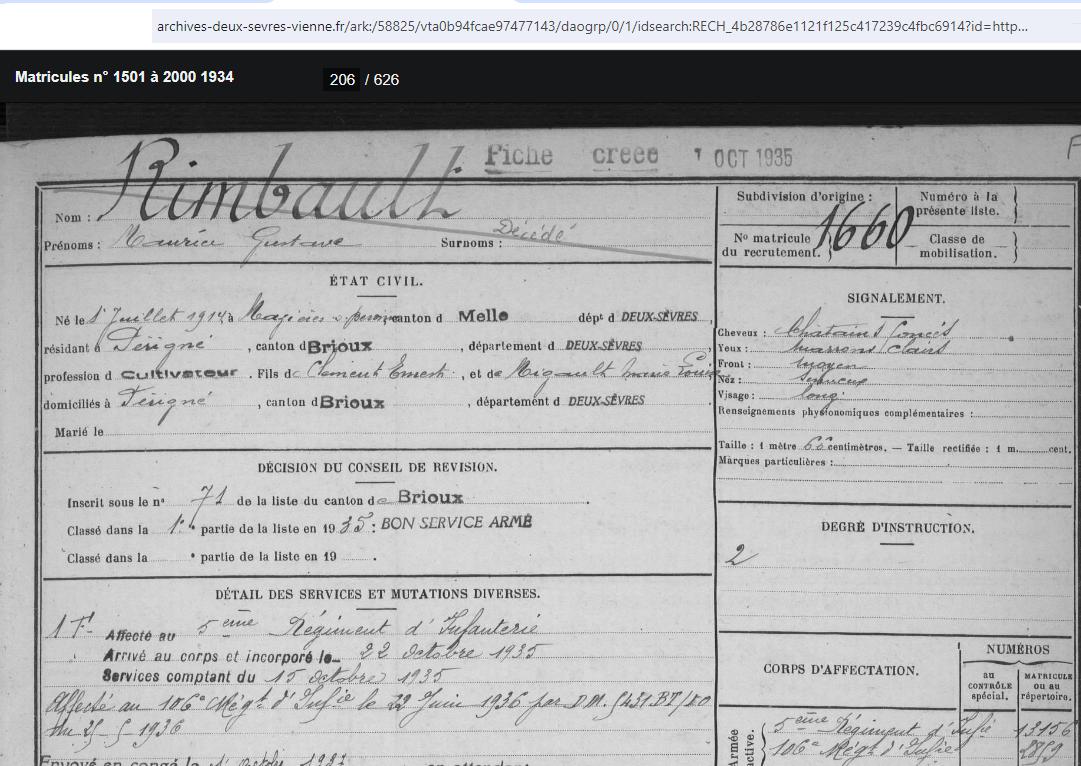 archives-deux-sevres-vienne.fr/ark:/58825/vta0b94fcae97477143/daogrp/0/1/idsearch:RECH_4b28786e1121f125c417239c4fbc6914?id=http...
Matricules n° 1501 à 2000 1934
206 / 626
Fiche creee 1 OCT 1935
Nom : Rimbault
Prénoms : Maurice Gustave Surnoms : Décédé
ÉTAT CIVIL.
Né le 1 Juillet 1914 à canton d Melle dépt d DEUX-SÈVRES
résidant à Périgné, canton d Brioux, département d DEUX-SÈVRES
profession d Cultivateur. Fils de Clément Ernest, et de Migault Marie Louise
domiciliés à Périgné, canton d Brioux, département d DEUX-SÈVRES
Marié le
DÉCISION DU CONSEIL DE REVISION.
Inscrit sous le n° 71 de la liste du canton de Brioux.
Classé dans la 1e partie de la liste en 1935 : BON SERVICE ARMÉ
Classé dans la e partie de la liste en 19 .
DÉTAIL DES SERVICES ET MUTATIONS DIVERSES.
Affecté au 5eme Régiment d'Infanterie
Arrivé au corps et incorporé le 22 Octobre 1935
Services comptant du 15 octobre 1935
Affecté au 106e Régt d'Infie le 22 Juin 1936 par D.M.
1936
Envoyé en congé le octobre 1937 en attendant
Subdivision d'origine :
Numéro à la présente liste.
No matricule du recrutement. 1660
Classe de mobilisation.
SIGNALEMENT.
Cheveux : Chatains foncés
Yeux : marrons clairs
Front : moyen
Nez :
Visage : long
Renseignements physionomiques complémentaires :
Taille : 1 mètre centimètres. — Taille rectifiée : 1 m. cent.
Marques particulières :
DEGRÉ D'INSTRUCTION.
2
CORPS D'AFFECTATION.
NUMÉROS
au CONTRÔLE spécial.
MATRICULE ou au répertoire.
Armée active.
5eme Régiment d'Infie 13156
106e Régt d'Infie